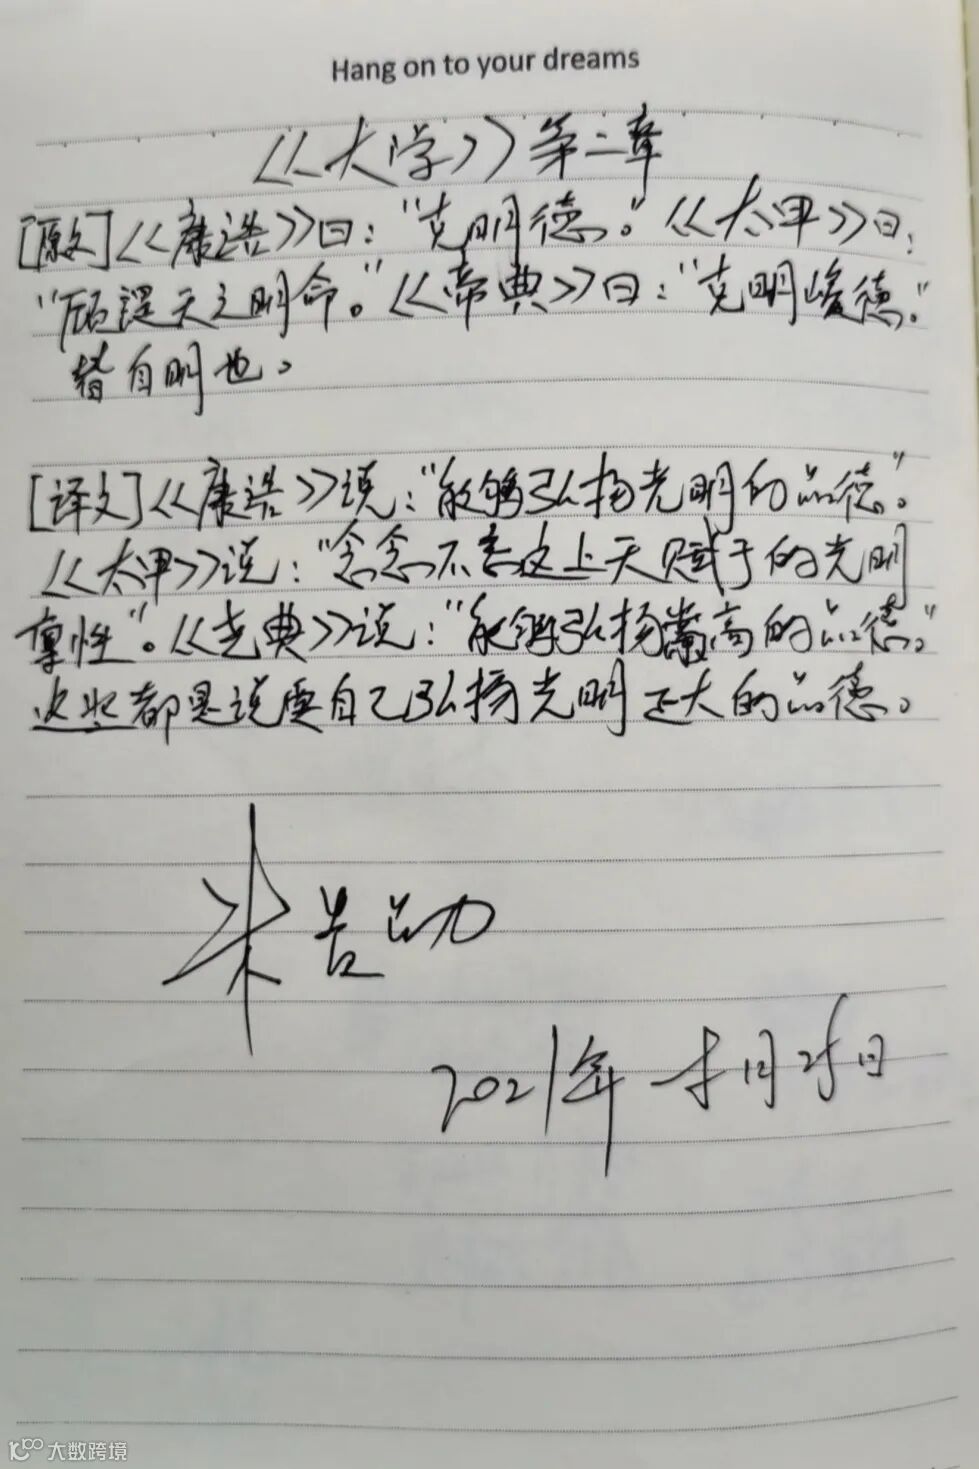 Hang on to your dreams
《大学》第二章
[原文]《康诰》曰:“克明德。”《太甲》曰:
“顾諟天之明命。”《帝典》曰:“克明峻德。”
皆自明也。
[译文]《康诰》说:“能够弘扬光明的品德”。
《太甲》说:“念念不忘这上天赋于的光明
禀性”。《尧典》说:“能够弘扬崇高的品德。”
这些都是说要自己弘扬光明正大的品德。
2021年 月25日
大数跨境